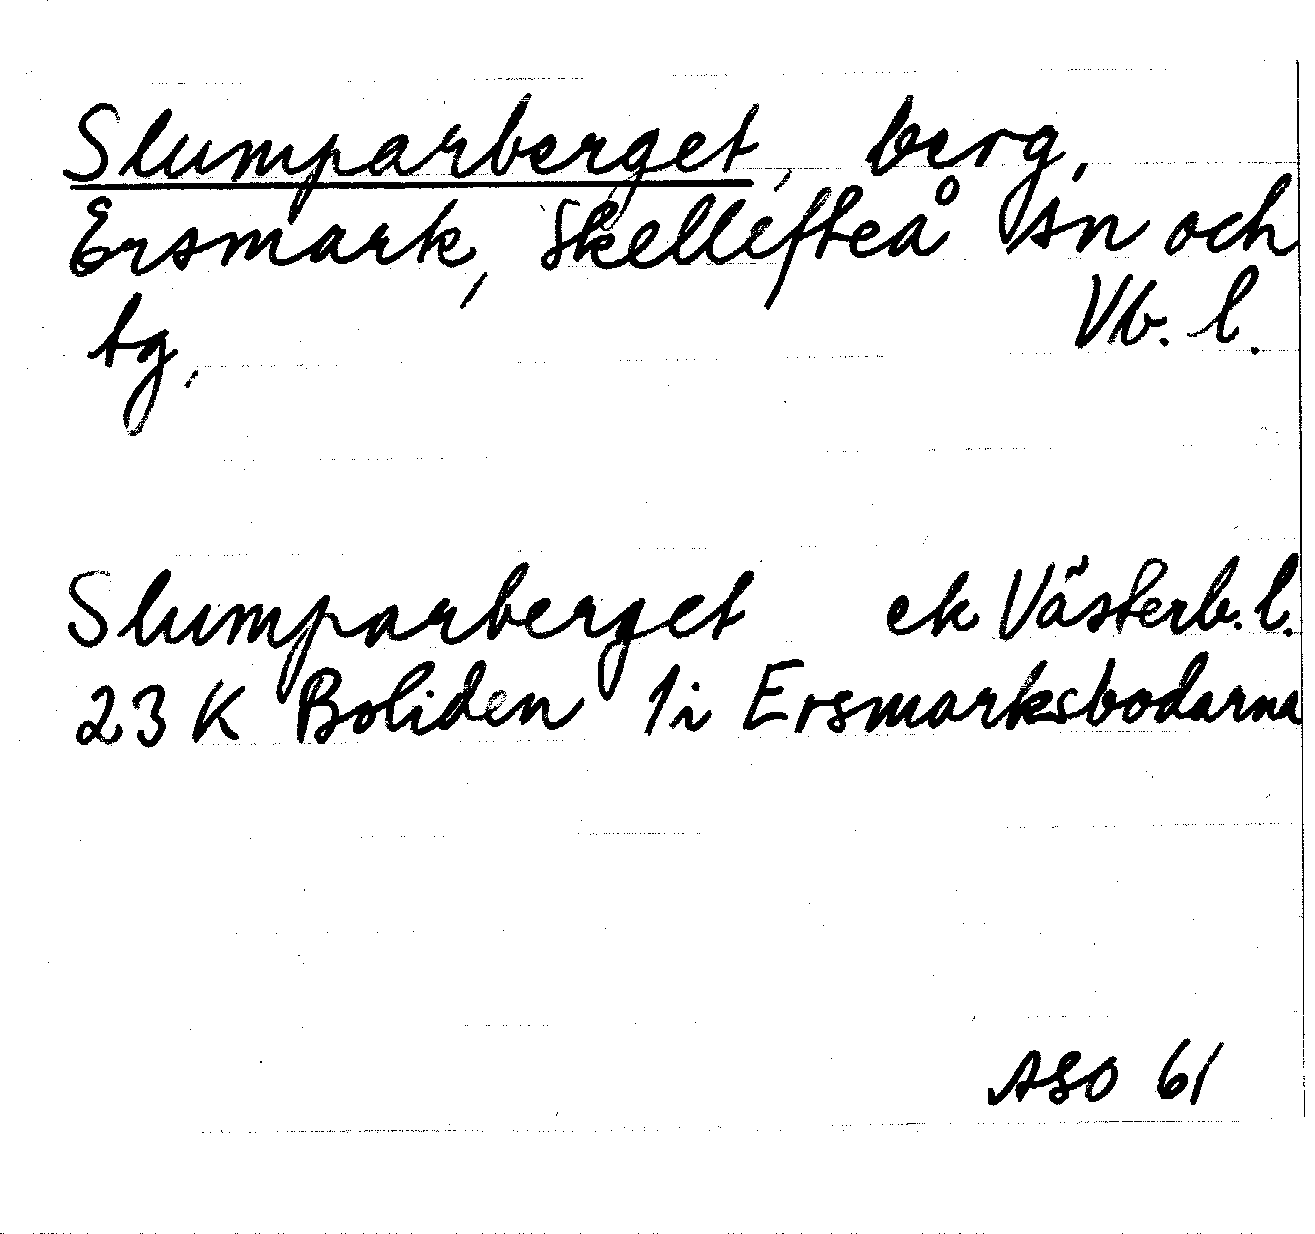 Slumparberget, berg,
Ersmark, Skellefteå sn och
tg, Vb. l.
Slumparberget ek Västerb. l.
23 K Boliden 1i Ersmarksbodarna
ASO 61